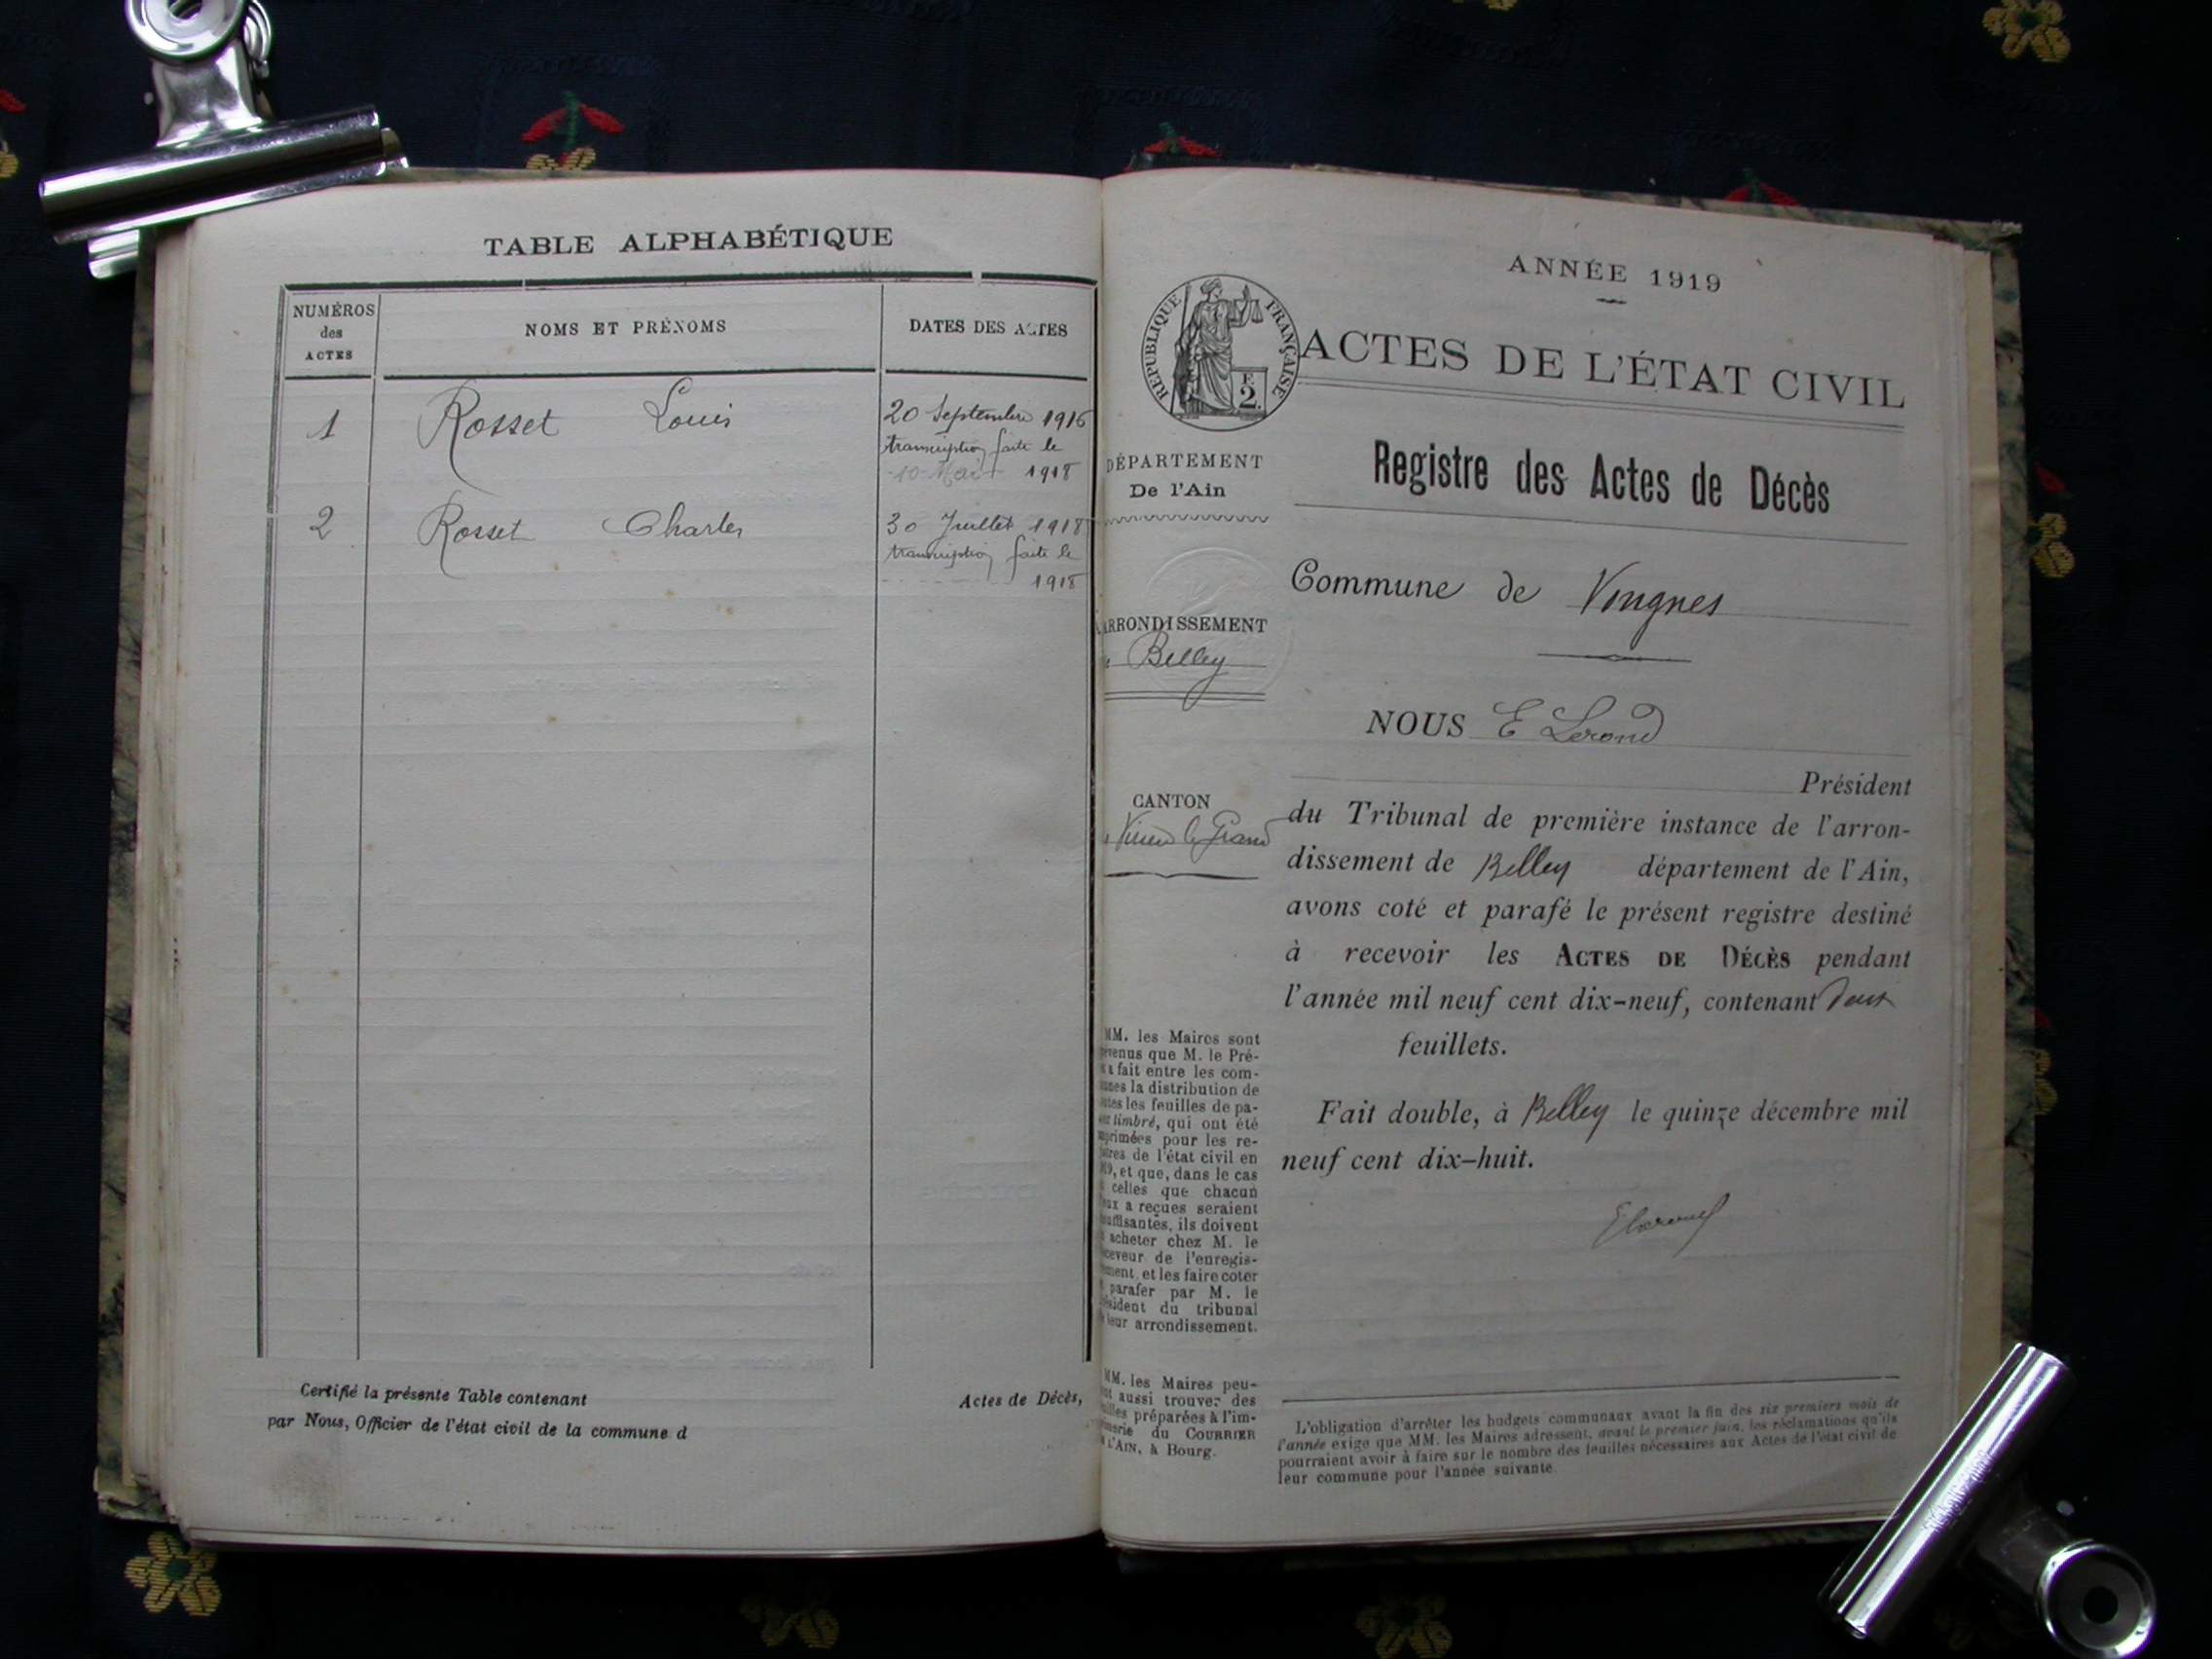 TABLE ALPHABÉTIQUE
NUMÉROS
des
ACTES
NOMS ET PRÉNOMS
DATES DES ACTES
1
Rosset Louis
20 Septembre 1916
transcription faite le
10 Mai 1918
2
Rosset Charles
30 Juillet 1918
transcription faite le
1918
Certifié la présente Table contenant Actes de Décès,
par Nous, Officier de l'état civil de la commune d
ANNÉE 1919
RÉPUBLIQUE FRANÇAISE
F.
2.
ACTES DE L'ÉTAT CIVIL
Registre des Actes de Décès
DÉPARTEMENT
De l'Ain
Commune de Vongnes
ARRONDISSEMENT
Belley
NOUS E Lerond
Président
CANTON
Virieu le Grand
du Tribunal de première instance de l'arron-
dissement de Belley département de l'Ain,
avons coté et parafé le présent registre destiné
à recevoir les ACTES DE DÉCÈS pendant
l'année mil neuf cent dix-neuf, contenant deux
feuillets.
Fait double, à Belley le quinze décembre mil
neuf cent dix-huit.
MM. les Maires sont
que M. le Pré-
a fait entre les com-
la distribution de
les feuilles de pa-
timbré, qui ont été
pour les re-
de l'état civil en
et que, dans le cas
celles que chacun
a reçues seraient
ils doivent
acheter chez M. le
de l'enregis-
et les faire coter
parafer par M. le
du tribunal
leur arrondissement.
MM. les Maires peu-
aussi trouver des
préparées à l'im-
du COURRIER
L'AIN, à Bourg.
L'obligation d'arrêter les budgets communaux avant la fin des six premiers mois de
l'année exige que MM. les Maires adressent, avant le premier juin, les réclamations qu'ils
pourraient avoir à faire sur le nombre des feuilles nécessaires aux Actes de l'état civil de
leur commune pour l'année suivante.